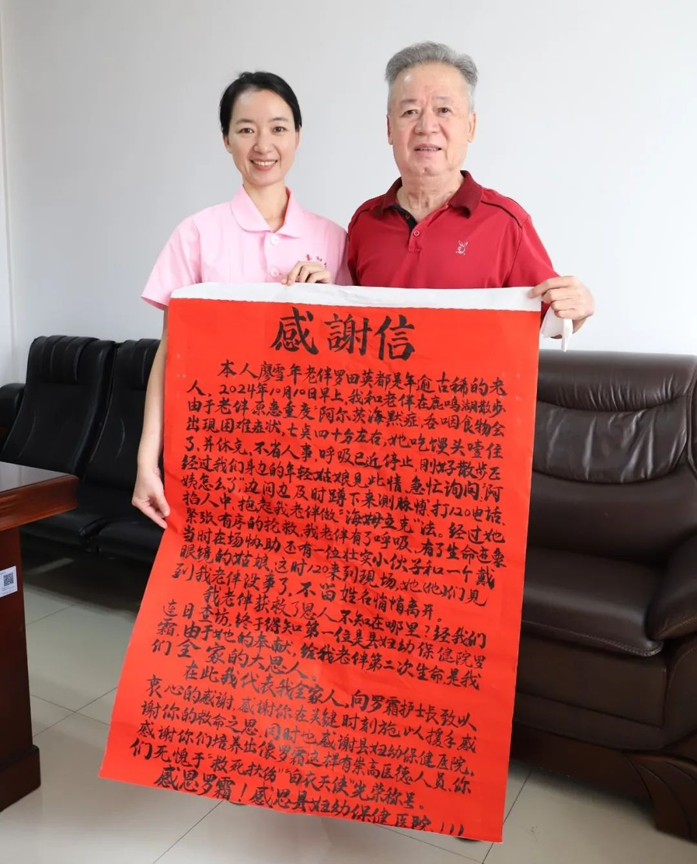 感謝信
本人廖雪年老伴罗田英都是年逾古稀的老
人，2024年10月10日早上，我和老伴在鹿鸣湖散步
由于老伴原患重度"阿尔茨海默症，吞咽食物会
出现困难症状，七点四十分左右，她吃馒头噎住
了，并休克，不省人事，呼吸已近停止，刚好散步
经过我们身边的年轻姑娘见此情，急忙询问"阿
姨怎么了"边问边及时蹲下来测脉搏，打120电话，
掐人中，抱起我老伴做"海姆立克"法。经过她
紧张有序的抢救，我老伴有了呼吸，有了生命迹象
当时在场帮助还有一位壮实小伙子和一个戴
眼镜的姑娘，这时120来到现场，她（他）们见
到我老伴没事了，不留姓名悄悄离开。
我老伴获救了恩人不知在哪里？经我们
连日查访，终于得知第一位是县妇幼保健院罗
霜，由于她的奉献，给我老伴第二次生命，是我
们全家的大恩人。
在此我代表我全家人，向罗霜护士长致以
衷心的感谢，感谢你在关键时刻施以援手，感
谢你的救命之恩，同时也感谢县妇幼保健医院，
感谢你们培养出像罗霜这样有崇高医德人员，你
们无愧于"救死扶伤""白衣天使"光荣称号。
感恩罗霜！感恩县妇幼保健医院！！！